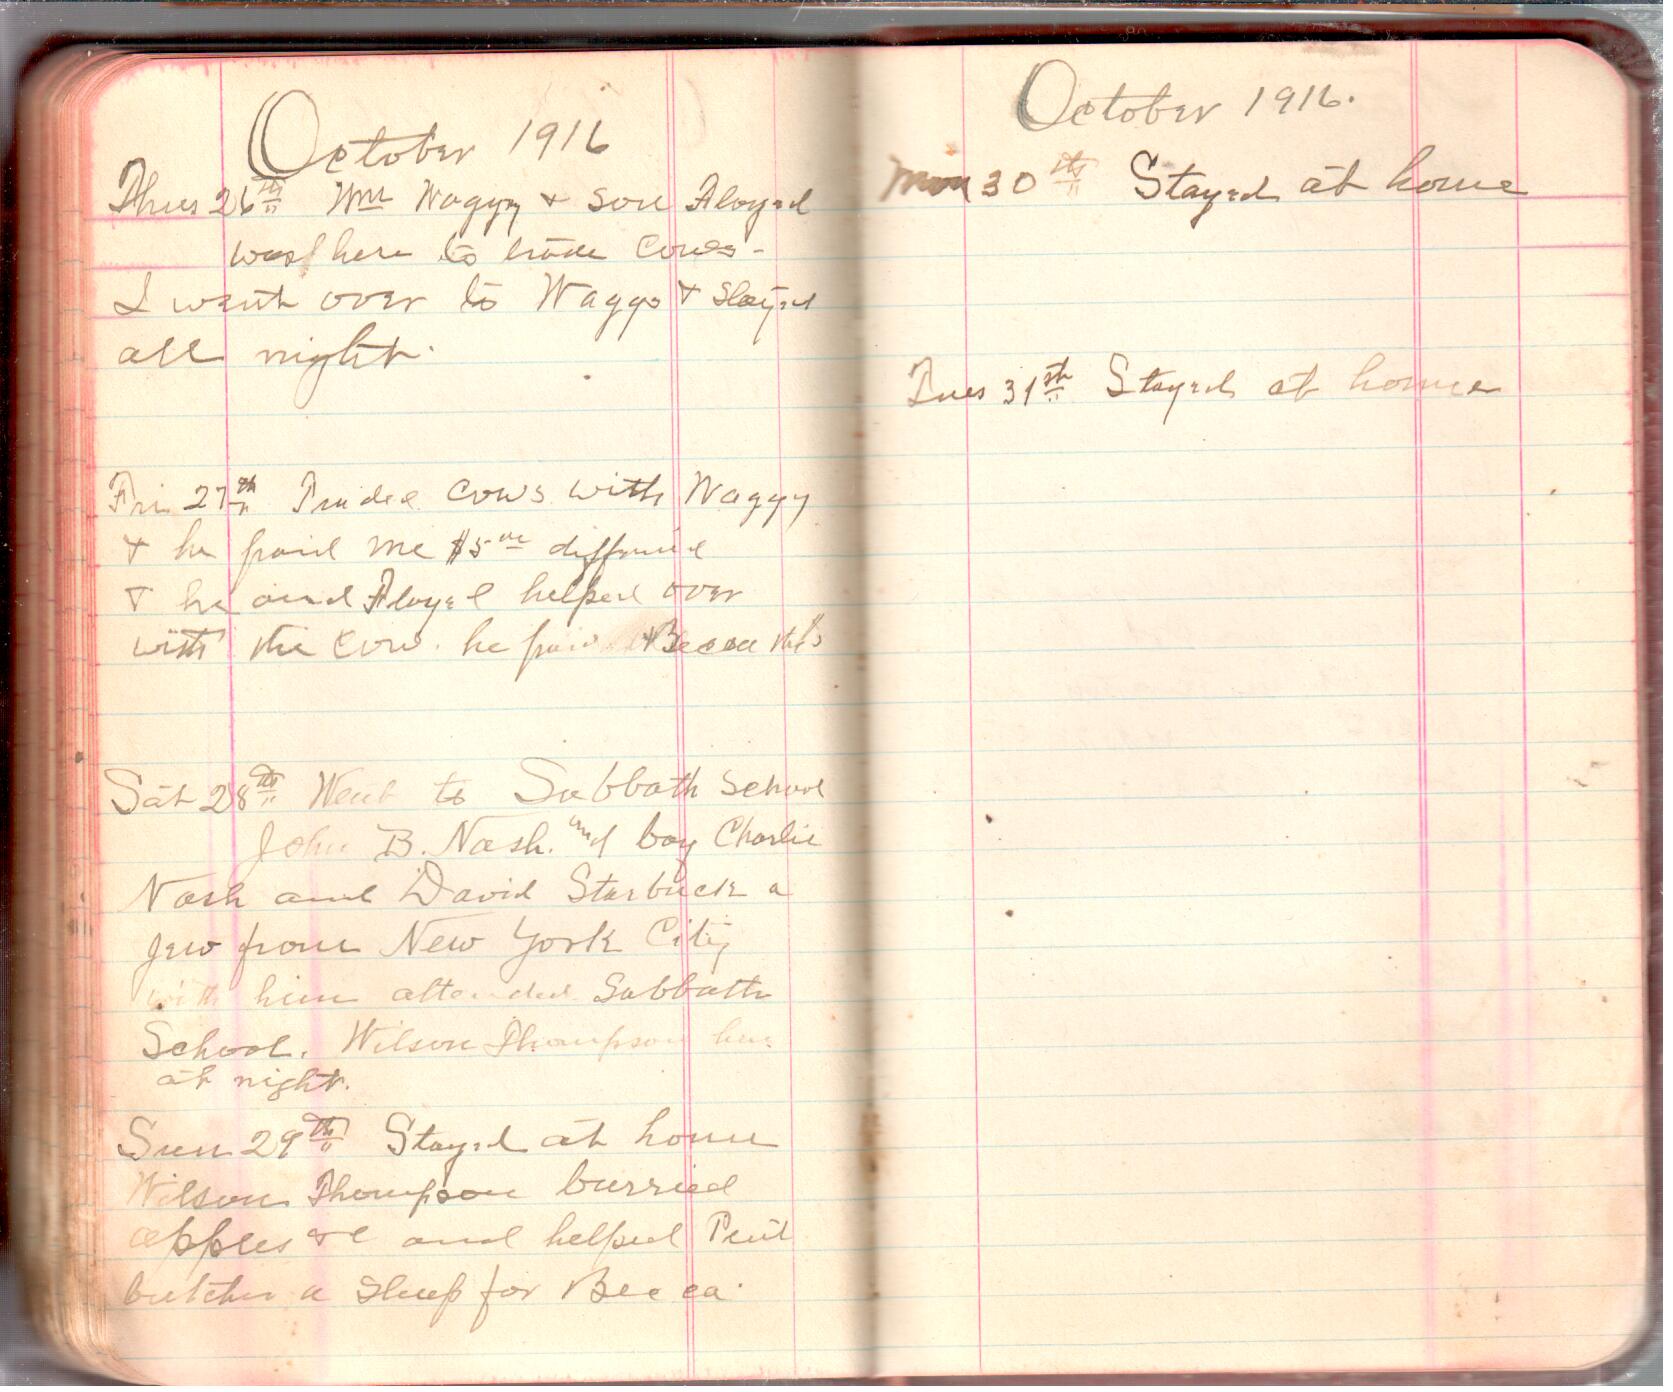 October 1916
Thus 26th Wm Waggy & son Floyed
was here to trade Cows -
I went over to Waggs & Stayed
all night.
Fri 27th Traded Cows with Waggy
& he paid me $5 00
& he and Floyed helped over
with the Cow. he Becca
Sat 28th Went to Sabbath School
John B. Nash. and boy Charlie
Nash and David Starbuck a
Jew from New York City
with him attended Sabbath
School. Wilson Thompson here
at night.
Sun 29th Stayed at home
Wilson Thompson burried
apples &c and helped
butcher a Sheep for Becca.
October 1916.
Mon 30th Stayed at home
Tues 31st Stayed at home